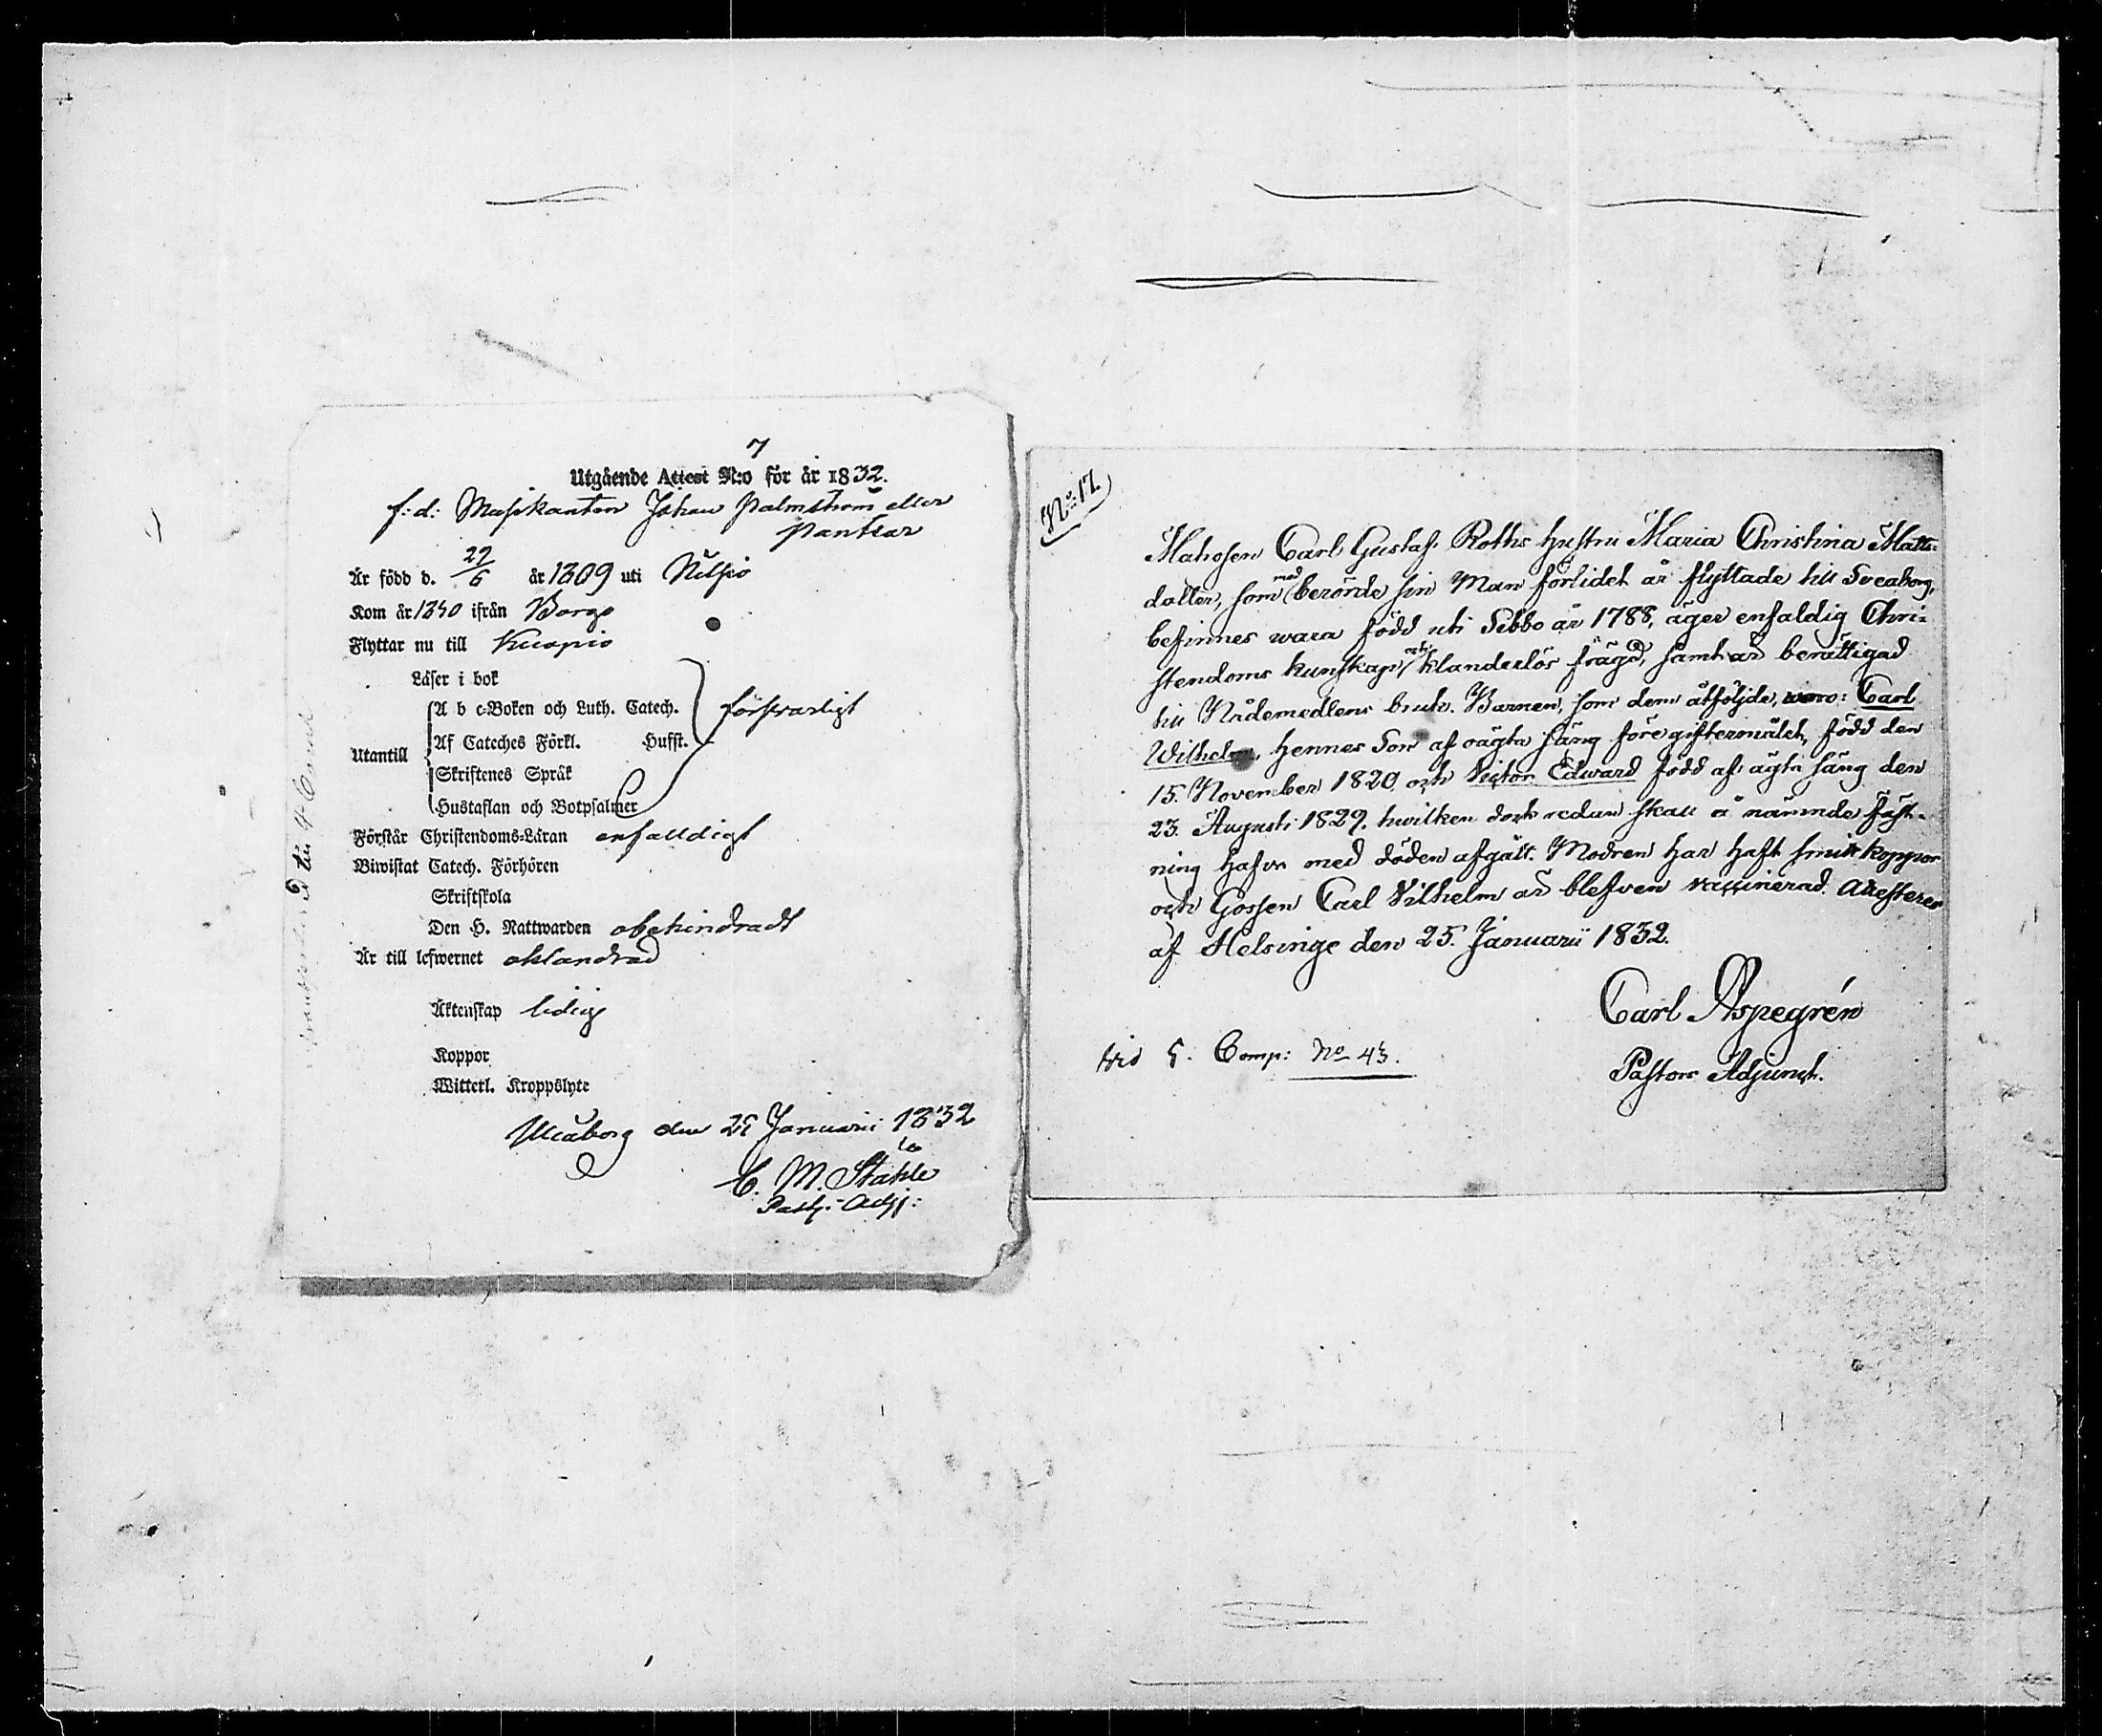 7
Utgående Attest N:o för år 1832.
f: d: Musikanten Johan Palmström eller
Pantsar
Är född d. 27/6 år 1809 uti Nilsio
Kom år 1830 ifrån Borgo
Flyttar nu till Kuopio
Läser i bok
A b c-Boken och Luth. Catech. försvarligt
Utantill Af Cateches Förkl. Hufst.
Skriftenes Språk
Hustaflan och Botpsalmer
Förstår Christendoms-Läran enfalldigt
Biwistat Catech. Förhören
Skriftskola
Den H. Nattwarden obehindradt
Är till lefwernet oklandrad
Äktenskap ledig
Koppor
Witterl. Kroppslyte
Uleåborg den Januarii 1832
C. M. Ståhle
Past. Adj:
No: 17.
Matrosen Carl Gustaf Roths hustru Maria Christina Matts-
dotter, som med berörde sin Man förlidet år flyttade till Sveaborg,
befinnes wara född uti Sibbo år 1788, äger enfaldig Chri-
stendoms kunskap och klanderlös frägd, samt är berättigad
till Nådemedlens bruk. Barnen, som dem åtföljde, woro: Carl
Wilhelm, hennes Son af oägta säng före giftermålet, född den
15. November 1820 och Victor Edward född af ägta säng den
23. Augusti 1829. hwilken dock redan skall å nämnde fäst-
ning hafva med döden afgått. Modren har haft smittkoppor
och Gossen Carl Vilhelm är blefven vaccinerad. Attesteres
af Helsinge den 25. Januarii 1832.
Carl Aspegrén
Pastors Adjunct.
vid 5. Comp: No 43.